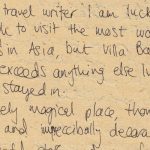 travel writer I am luck
to visit the most wo
s in Asia, but Villa Ba
exceeds anything else lu
stayed in.
ely magical place thou
and impeccibally decora